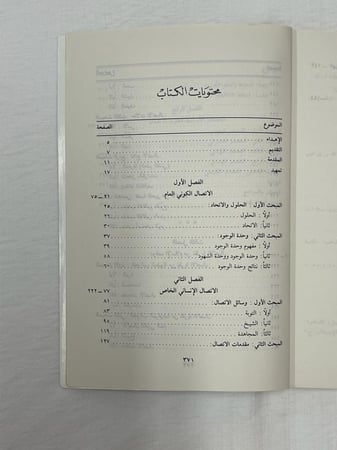 محتويات الكتاب
الموضوع الصفحة
الإهداء ٥
التقديم ٧
المقدمة ١١
تمهيد ١٧
الفصل الأول
الاتصال الكوني العام ٢١ – ٧٥
المبحث الأول : الحلول والاتحاد: ٢٥
أولاً : الحلول ٢٦
ثانياً : الاتحاد ٣٠
المبحث الثاني : وحدة الوجود ٣٧
أولاً : مفهوم وحدة الوجود ٣٩
ثانياً : وحدة الوجود ووحدة الشهود
ثالثاً : نتائج وحدة الوجود
الفصل الثاني
الاتصال الإنساني الخاص ٧٧ – ٢٢٢
المبحث الأول : وسائل الاتصال: ٨١
أولاً : التوبة ٨٣
ثانياً : الشيخ ٩٨
ثالثاً : المجاهدة
المبحث الثاني : مقدمات الاتصال: ١٢٧
٣٧١